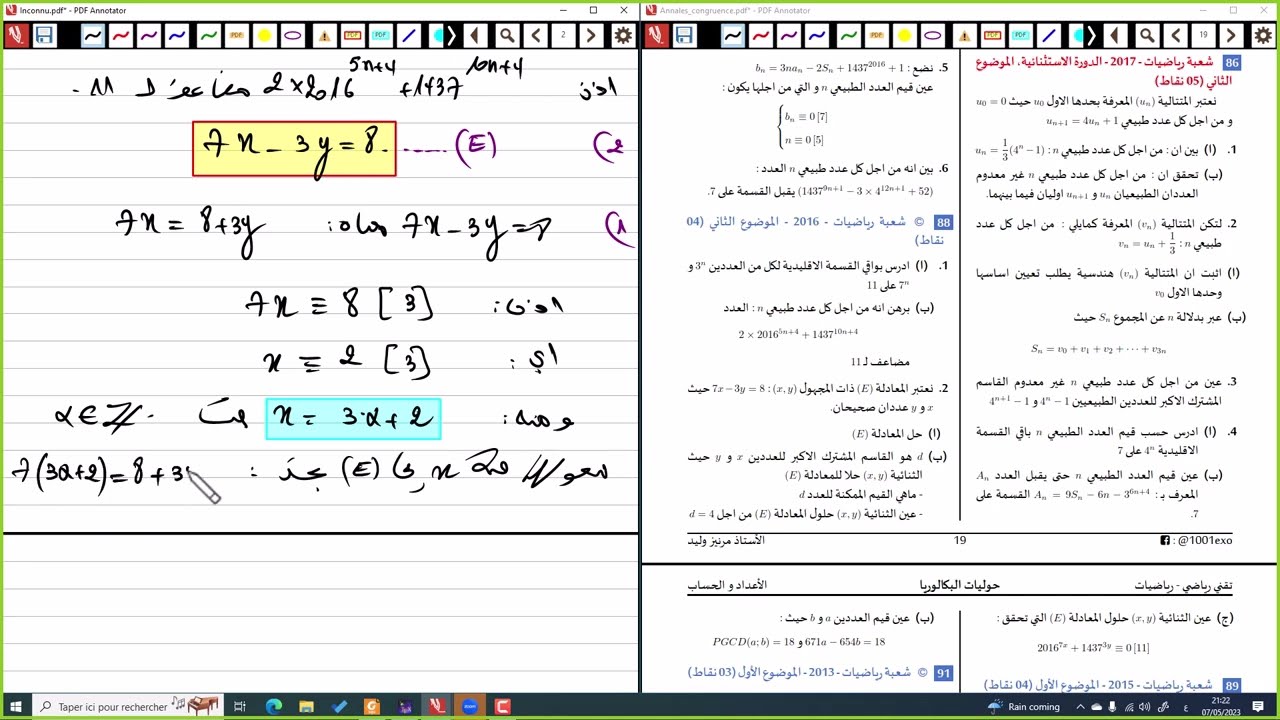 Inconnu.pdf* - PDF Annotator
2
اذن 2×2016^{5n+4} + 1437^{10n+4} مضاعف لـ 11 .
2) 7x - 3y = 8 ...... (E)
7x - 3y = 8 معناه: 7x = 8+3y
اذن: 7x ≡ 8 [3]
أي: x ≡ 2 [3]
ومنه: x = 3α+2 حيث α∈ℤ .
(E) نجد : 7(3α+2) = 8 + 3
Annales_congruence.pdf* - PDF Annotator
19
86 شعبة رياضيات - 2017 - الدورة الاستثنائية، الموضوع
الثاني (05 نقاط)
نعتبر المتتالية (u_n) المعرفة بحدها الاول u_0 حيث u_0 = 0
و من اجل كل عدد طبيعي u_{n+1} = 4u_n + 1
1. (ا) بين ان : من اجل كل عدد طبيعي n : u_n = 1/3(4^n - 1)
(ب) تحقق ان : من اجل كل عدد طبيعي n غير معدوم
العددان الطبيعيان u_n و u_{n+1} اوليان فيما بينهما.
2. لتكن المتتالية (v_n) المعرفة كمايلي : من اجل كل عدد
طبيعي n : v_n = u_n + 1/3
(ا) اثبت ان المتتالية (v_n) هندسية يطلب تعيين اساسها
وحدها الاول v_0
(ب) عبر بدلالة n عن المجموع S_n حيث
S_n = v_0 + v_1 + v_2 + ··· + v_{3n}
3. عين من اجل كل عدد طبيعي n غير معدوم القاسم
المشترك الاكبر للعددين الطبيعيين 4^n - 1 و 4^{n+1} - 1
4. (ا) ادرس حسب قيم العدد الطبيعي n باقي القسمة
الاقليدية 4^n على 7
(ب) عين قيم العدد الطبيعي n حتى يقبل العدد A_n
المعرف بـ : A_n = 9S_n - 6n - 3^{6n+4} القسمة على
7.
5. نضع : b_n = 3na_n - 2S_n + 1437^{2016} + 1
عين قيم العدد الطبيعي n و التي من اجلها يكون :
b_n ≡ 0 [7]
n ≡ 0 [5]
6. بين انه من اجل كل عدد طبيعي n العدد :
(1437^{9n+1} - 3 × 4^{12n+1} + 52) يقبل القسمة على 7.
88 © شعبة رياضيات - 2016 - الموضوع الثاني (04
نقاط)
1. (ا) ادرس بواقي القسمة الاقليدية لكل من العددين 3^n و
7^n على 11
(ب) برهن انه من اجل كل عدد طبيعي n : العدد
2 × 2016^{5n+4} + 1437^{10n+4}
مضاعف لـ 11
2. نعتبر المعادلة (E) ذات المجهول (x, y) : 7x - 3y = 8 حيث
x و y عددان صحيحان.
(ا) حل المعادلة (E)
(ب) d هو القاسم المشترك الاكبر للعددين x و y حيث
الثنائية (x, y) حلا للمعادلة (E)
- ماهي القيم الممكنة للعدد d
- عين الثنائية (x, y) حلول المعادلة (E) من اجل d = 4
@1001exo :
19
الأستاذ مرنيز وليد
تقني رياضي - رياضيات
حوليات البكالوريا
الأعداد و الحساب
(ج) عين الثنائية (x, y) حلول المعادلة (E) التي تحقق :
2016^{7x} + 1437^{3y} ≡ 0 [11]
89 شعبة رياضيات - 2015 - الموضوع الأول (04 نقاط)
(ب) عين قيم العددين a و b حيث :
671a - 654b = 18 و PGCD(a; b) = 18
91 © شعبة رياضيات - 2013 - الموضوع الأول (03 نقاط)
Taper ici pour rechercher
Rain coming
21:22
07/05/2023